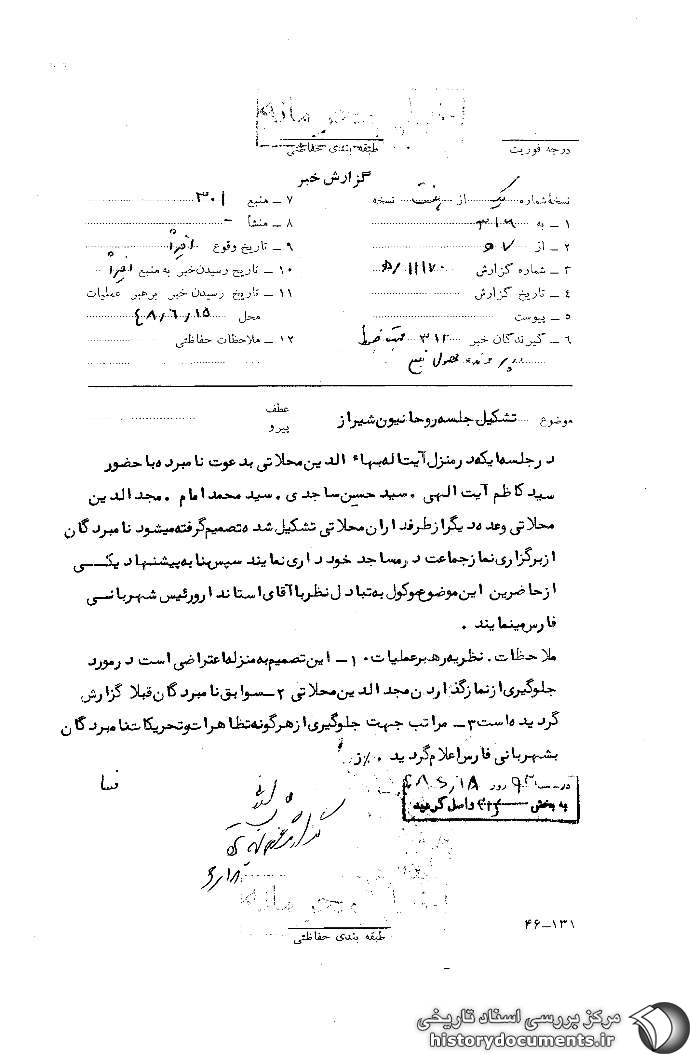 خیلی محرمانه
طبقه بندی حفاظتی
درجه فوریت
گزارش خبر
نسخه شماره یک از هفت نسخه
۱ ــ به ۳۱۲
۲ ــ از ۵۷
۳ ــ شماره گزارش ۱۱۱۷۰/ه
۴ ــ تاریخ گزارش
۵ ــ پیوست
۶ ــ گیرندگان خبر ۳۱۲
در پرونده محصول
۷ ــ منبع ۳۰۱
۸ ــ منشأ -
۹ ــ تاریخ وقوع اخیراً
۱۰ ــ تاریخ رسیدن خبر به منبع اخیراً
۱۱ ــ تاریخ رسیدن خبر برهبر عملیات
محل ۴۸/۶/۱۵
۱۲ ــ ملاحظات حفاظتی
موضوع تشکیل جلسه روحانیون شیراز
عطف
پیرو
در جلسه ایکه در منزل آیت اله بهاء الدین محلاتی بدعوت نامبرده با حضور
سید کاظم آیت الهی . سید حسین ساجدی . سید محمد امام . مجد الدین
محلاتی وعده دیگر از طرفداران محلاتی تشکیل شده تصمیم گرفته میشود نامبردگان
از برگزاری نماز جماعت در مساجد خودداری نمایند سپس بنا به پیشنهاد یکی
از حاضرین این موضوع موکول به تبادل نظر با آقای استاندار ورئیس شهربانی
فارس مینمایند .
ملاحظات . نظریه رهبر عملیات ۱۰ــ این تصمیم به منزله اعتراضی است در مورد
جلوگیری از نماز گذاردن مجد الدین محلاتی ۲ــ سوابق نامبردگان قبلا گزارش
گردیده است ۳ــ مراتب جهت جلوگیری از هرگونه تظاهرات و تحریکات نامبردگان
بشهربانی فارس اعلام گردید .
در ساعت روز ۴۸/۶/۱۸
به بخش ۳۱۲ واصل گردید
۶/۱۸
خیلی محرمانه
طبقه بندی حفاظتی
۴۶ــ۱۳۱
مرکز بررسی اسناد تاریخی
historydocuments.ir